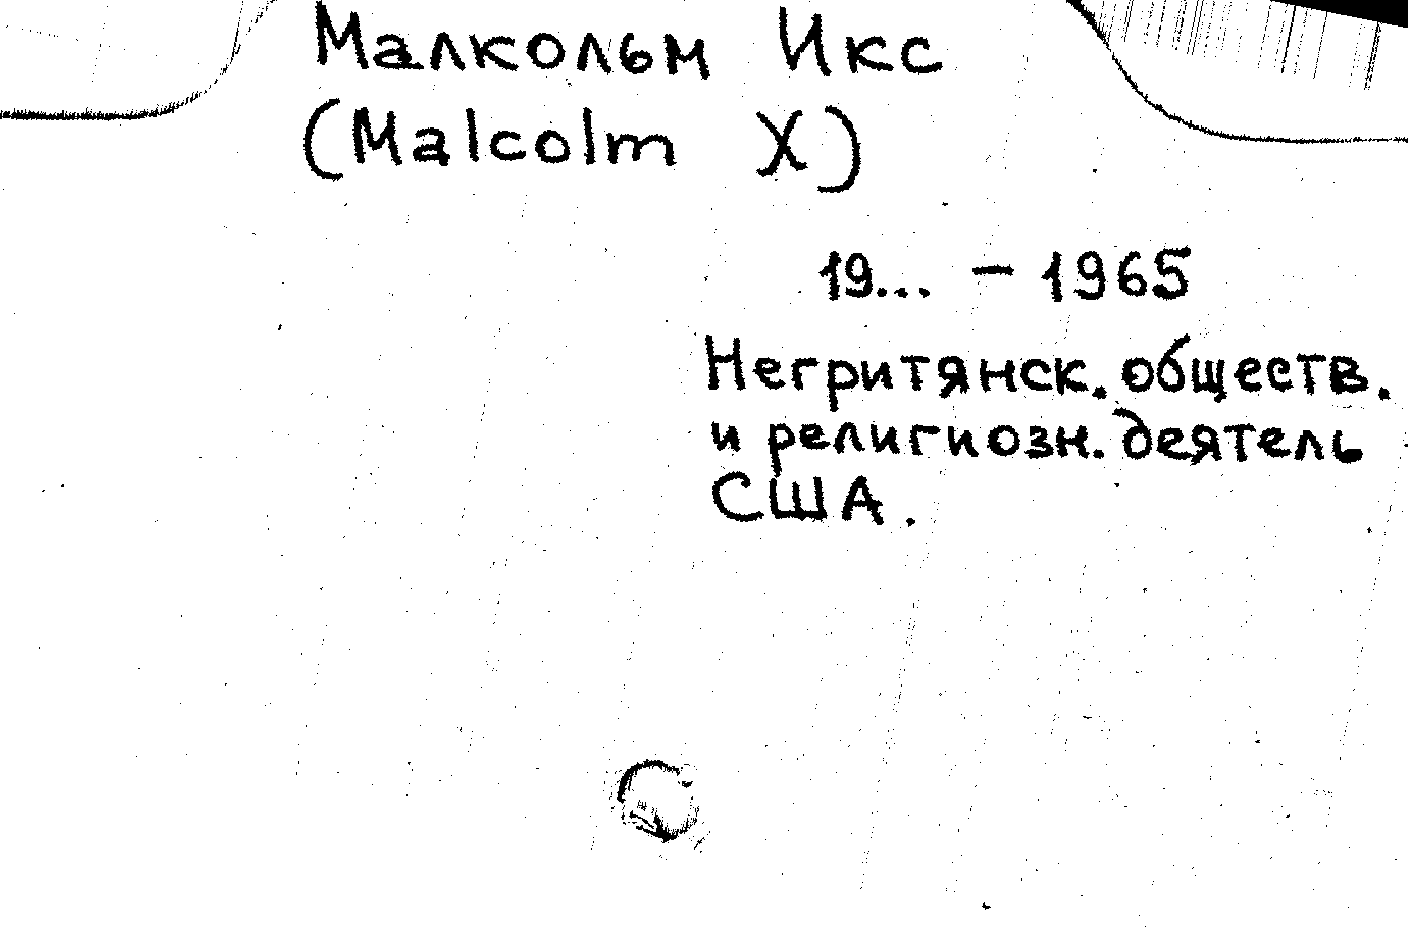 Малкольм Икс
(Malcolm X)
19... – 1965
Негритянск. обществ.
и религиозн. деятель
США.